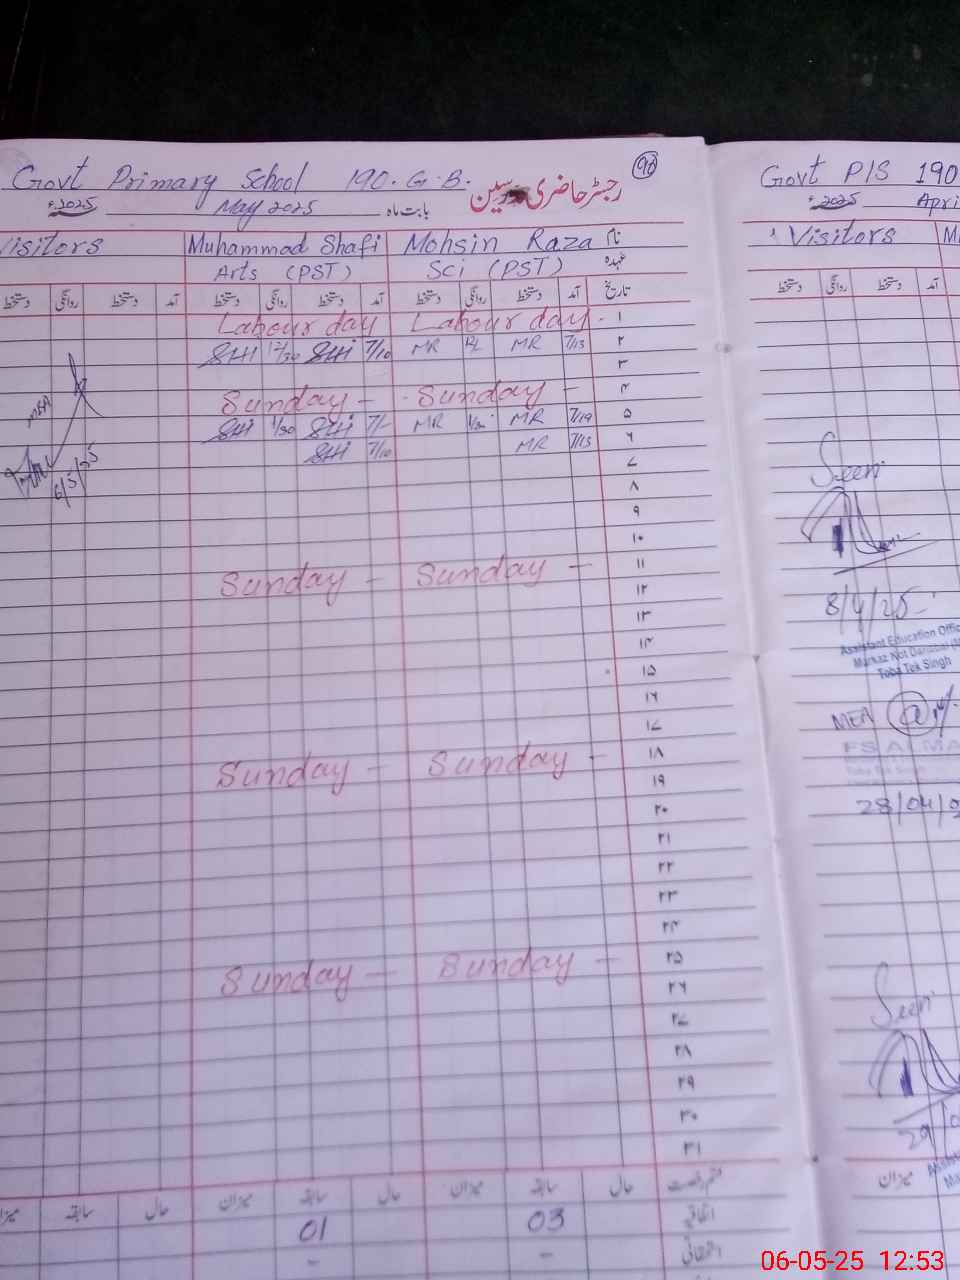 Govt Primary School 190.G.B. رجسٹر حاضری مدرسین 90
2025ء May 2025 بابت ماہ
Visitors Muhammad Shafi Mohsin Raza نام
Arts (PST) Sci (PST) عہدہ
دستخط روانگی دستخط آمد دستخط روانگی دستخط آمد دستخط روانگی دستخط آمد تاریخ
Labour day Labour day. ۱
12/30 7/10 MR MR 7/13 ۲
۳
Sunday - Sunday - ۴
1/30 MR MR 7/19 ۵
7/10 MR 7/13 ۶
MEA
6/5/25
۷
۸
۹
۱۰
Sunday - Sunday - ۱۱
۱۲
۱۳
۱۴
۱۵
۱۶
۱۷
Sunday - Sunday - ۱۸
۱۹
۲۰
۲۱
۲۲
۲۳
۲۴
Sunday - Sunday - ۲۵
۲۶
۲۷
۲۸
۲۹
۳۰
۳۱
میزان سابقہ حال میزان سابقہ حال میزان سابقہ حال قسم رخصت
01 03 اتفاقی
- - استحقاقی
Govt P/S 190
2025ء Apri
Visitors M
دستخط روانگی دستخط آمد
Seen
8/4/25
Assistant Education Offic
Toba Tek Singh
MEA
28/04/
Seen
29/0
میزان
06-05-25 12:53